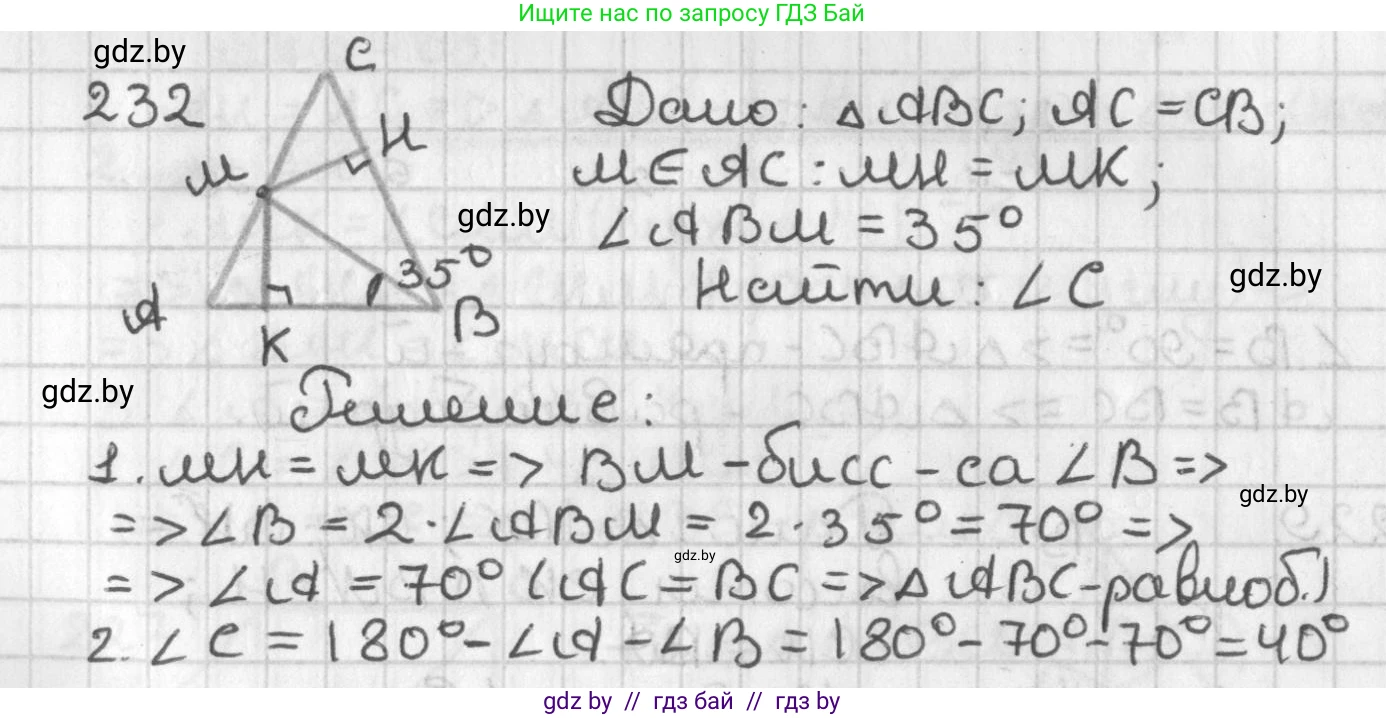 Ищите нас по запросу ГДЗ Бай
gdz.by
232
C
H
M
35°
A
K
B
Дано: △ABC; AC = CB;
M ∈ AC : MH = MK;
gdz.by
∠ABM = 35°
Найти: ∠C
gdz.by
gdz.by
Решение:
1. MH = MK => BM - бисс-са ∠B =>
gdz.by
=> ∠B = 2·∠ABM = 2·35° = 70° =>
gdz.by
=> ∠A = 70° (AC = BC => △ABC - равноб.)
2. ∠C = 180° - ∠A - ∠B = 180° - 70° - 70° = 40°
gdz by // гдз бай // гдз by